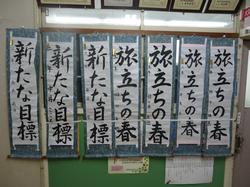 旅立ちの春
旅立ちの春
旅立ちの春
旅立ちの春
新たな目標
新たな目標
新たな目標